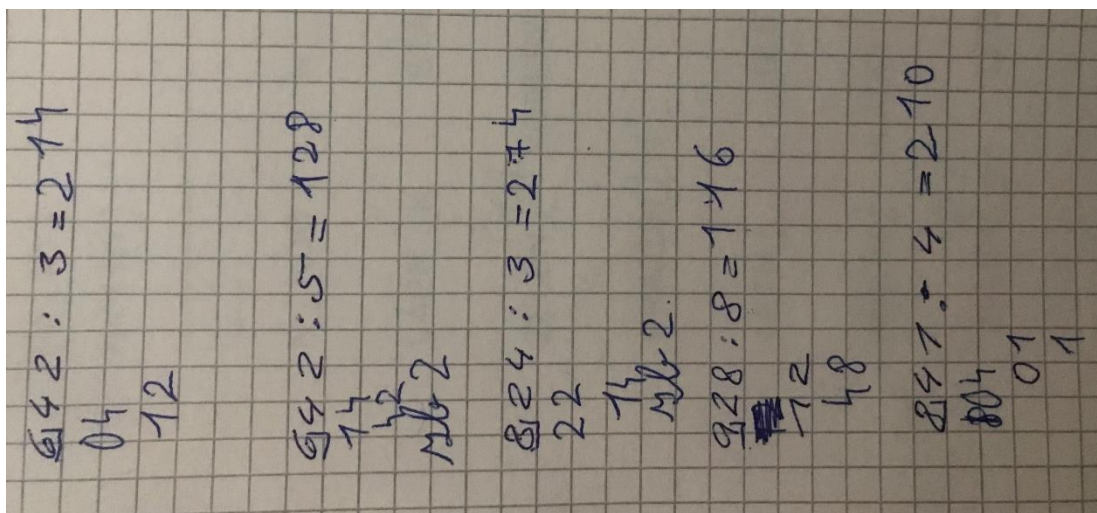 642 : 3 = 214
04
12
642 : 5 = 128
14
42
zb 2
824 : 3 = 274
22
14
zb 2
928 : 8 = 116
12
48
841 : 4 = 210
04
01
1